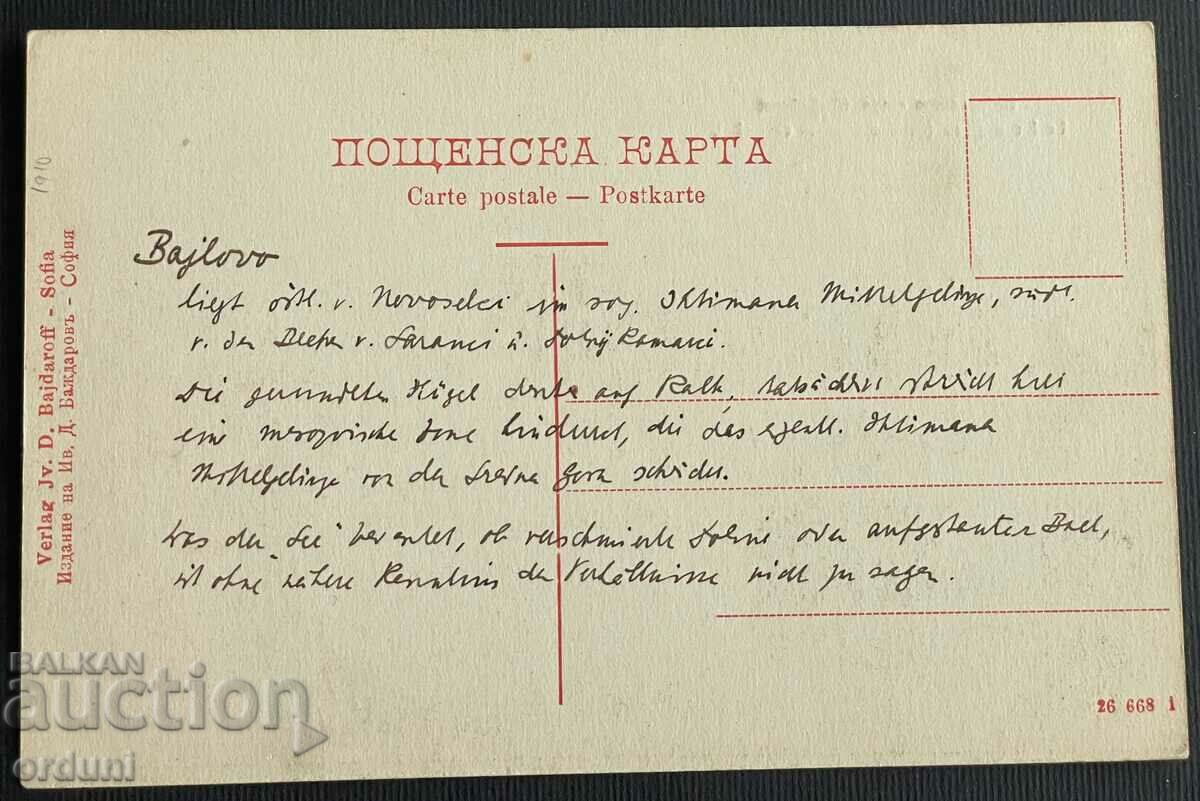 ПОЩЕНСКА КАРТА
Carte postale — Postkarte
1910
Verlag Jv. D. Bajdaroff - Sofia
Издание на Ив. Д. Баждаровъ - София
Bajlovo
liegt östl. v. Novoselci im sog. Ihtimana Mittelgebirge, südl.
v. den v. Saranci u. Dolnij Kamarci.
Die gerundeten Hügel auf Kalk, tatsächlich streicht hier
eine mesozoische Zone hindurch, die das eigentl. Ihtimana
Mittelgebirge von der Sredna Gora scheidet.
Was der "See" bedeutet, ob verschmierte Doline oder aufgestauter Bach,
ist ohne nähere Kenntnis der Verhältnisse nicht zu sagen.
26 668 1
BALKAN
auction
orduni